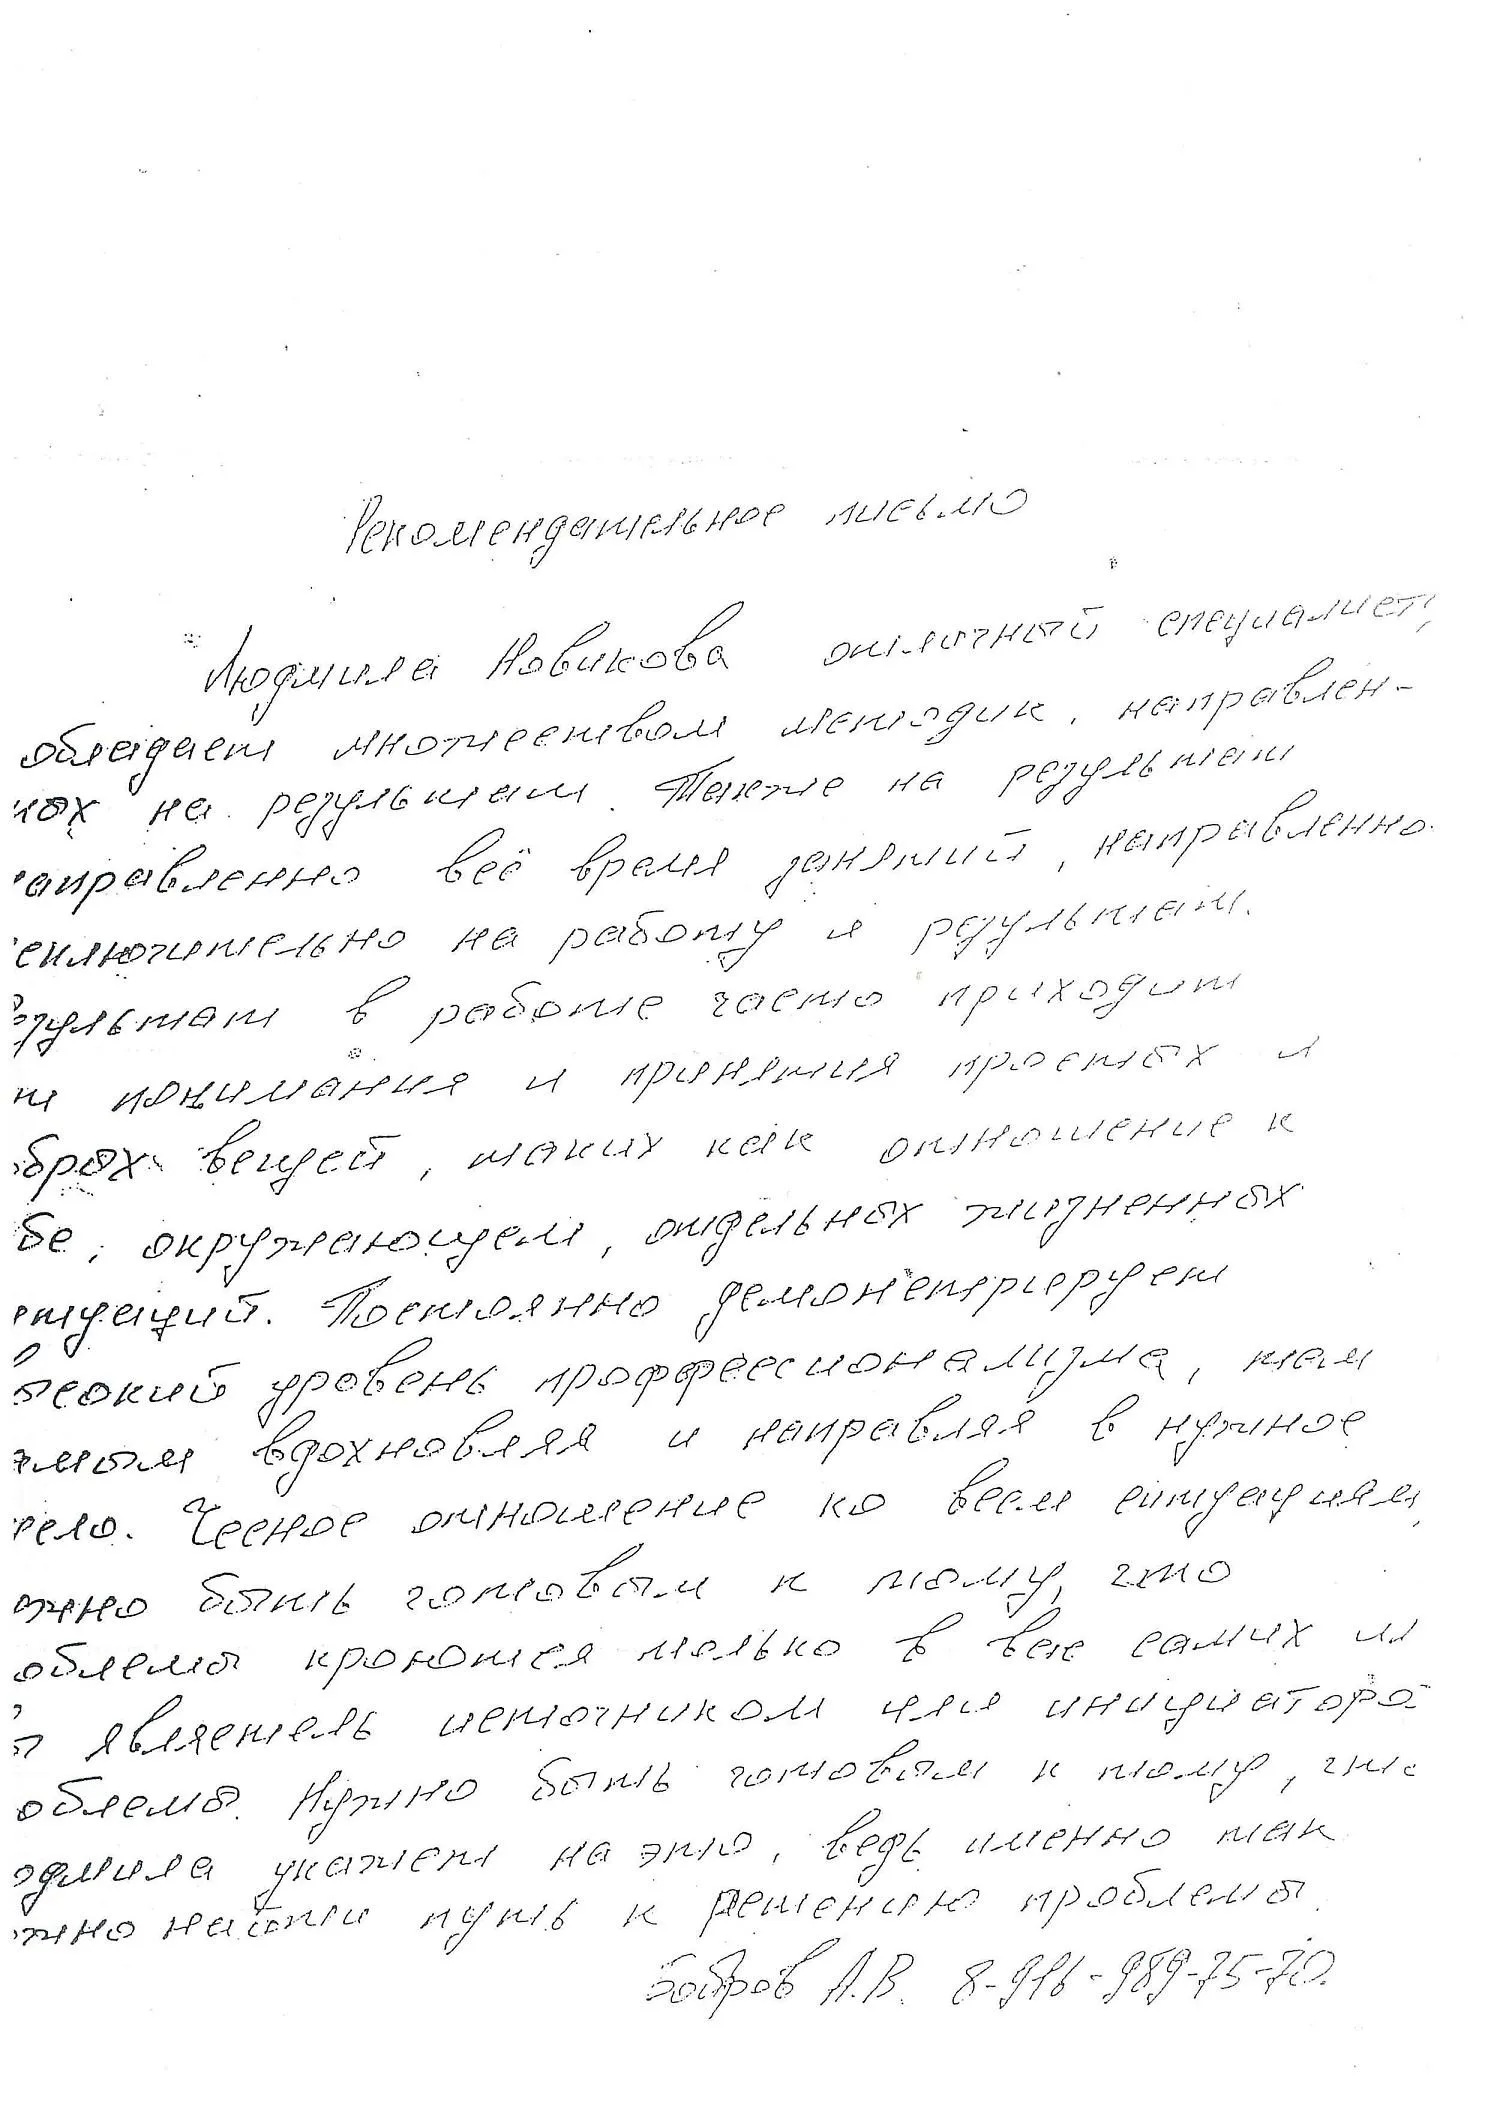 Рекомендательное письмо
Людмила Новикова отличный специалист,
обладает множеством методик, направлен-
ных на результат. Также на результат
направленно всё время занятий, направленно
сключительно на работу и результат.
зультат в работе часто приходит
т понимания и принятия простых и
обрых вещей, таких как отношение к
бе, окружающем, отдельных жизненных
итуаций. Постоянно демонстрирует
ысокий уровень проффессионализма, там
амым вдохновляя и направляя в нужное
село. Чесное отношение ко всем ситуациям,
ожно быть готовым к тому, что
облемы кроются только в вас самих и
ы являетель источником или инициаторо
облемы. Нужно быть готовым к тому, что
юдмила укажет на это, ведь именно так
ожно найти путь к решению проблемы.
Бобров А.В. 8-916-989-75-70.